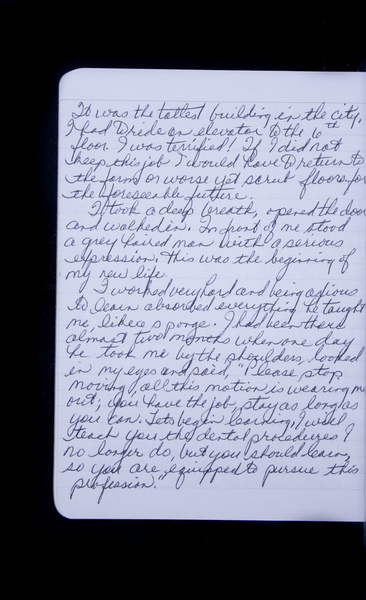 It was the tallest building in the city.
I had to ride an elevator to the 6th
floor. I was terrified! If I did not
keep this job I would have to return to
the farm or worse yet scrub floors for
the foreseeable future.
I took a deep breath, opened the door
and walked in. In front of me stood
a grey haired man with a serious
expression. This was the beginning of
my new life.
I worked very hard and being anxious
to learn absorbed everything he taught
me, like a sponge. I had been there
almost two months when one day
he took me by the shoulders, looked
in my eyes and said, "Please stop
moving, all this motion is wearing me
out; you have the job, stay as long as
you can. Lets begin learning, I will
teach you the dental procedures I
no longer do, but you should learn,
so you are equipped to pursue this
profession."